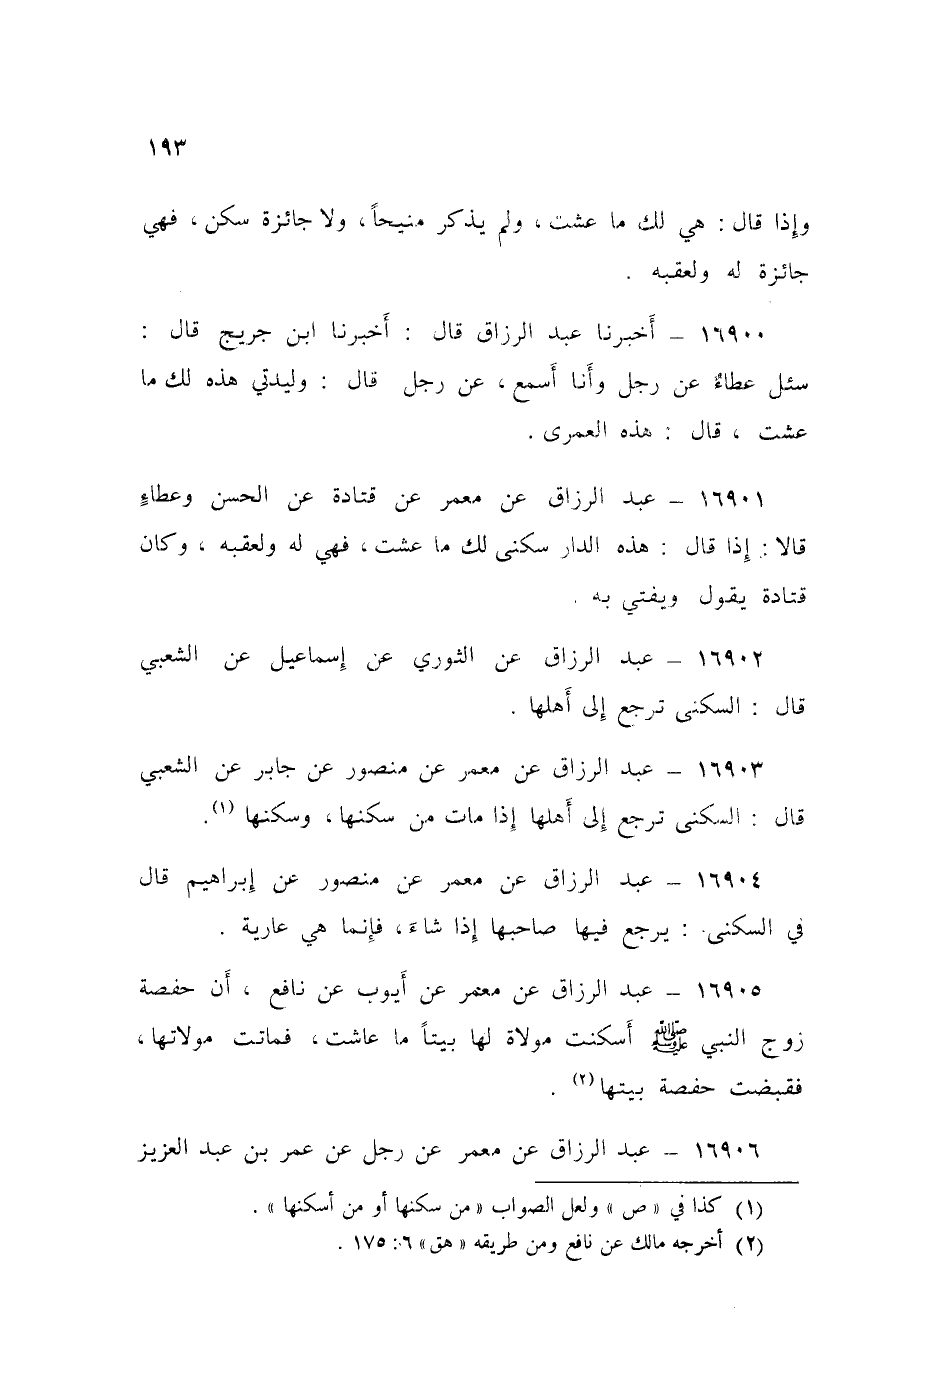 ١٩٣
وإذا قال : هي لك ما عشت ، ولم يذكر منيحاً ، ولا جائزة سكن ، فهي
جائزة له ولعقبه .
١٦٩٠٠ – أَخبرنا عبد الرزاق قال : أَخبرنا ابن جريج قال :
سئل عطاءٌ عن رجل وأَنا أَسمع ، عن رجل قال : وليدتي هذه لك ما
عشت ، قال : هذه العمرى .
١٦٩٠١ – عبد الرزاق عن معمر عن قتادة عن الحسن وعطاءٍ
قالا : إِذا قال : هذه الدار سكنى لك ما عشت ، فهي له ولعقبه ، وكان
قتادة يقول ويفتي به .
١٦٩٠٢ – عبد الرزاق عن الثوري عن إِسماعيل عن الشعبي
قال : السكنى ترجع إِلى أَهلها .
١٦٩٠٣ – عبد الرزاق عن معمر عن منصور عن جابر عن الشعبي
قال : السكنى ترجع إِلى أَهلها إِذا مات من سكنها ، وسكنها (١) .
١٦٩٠٤ – عبد الرزاق عن معمر عن منصور عن إِبراهيم قال
في السكنى : يرجع فيها صاحبها إِذا شاءَ ، فإِنما هي عارية .
١٦٩٠٥ – عبد الرزاق عن معمر عن أَيوب عن نافع ، أَن حفصة
زوج النبي ﷺ أَسكنت مولاة لها بيتاً ما عاشت ، فماتت مولاتها ،
فقبضت حفصة بيتها (٢) .
١٦٩٠٦ – عبد الرزاق عن معمر عن رجل عن عمر بن عبد العزيز
(١) كذا في « ص » ولعل الصواب « من سكنها أو من أسكنها » .
(٢) أخرجه مالك عن نافع ومن طريقه « هق » ٦ : ١٧٥ .